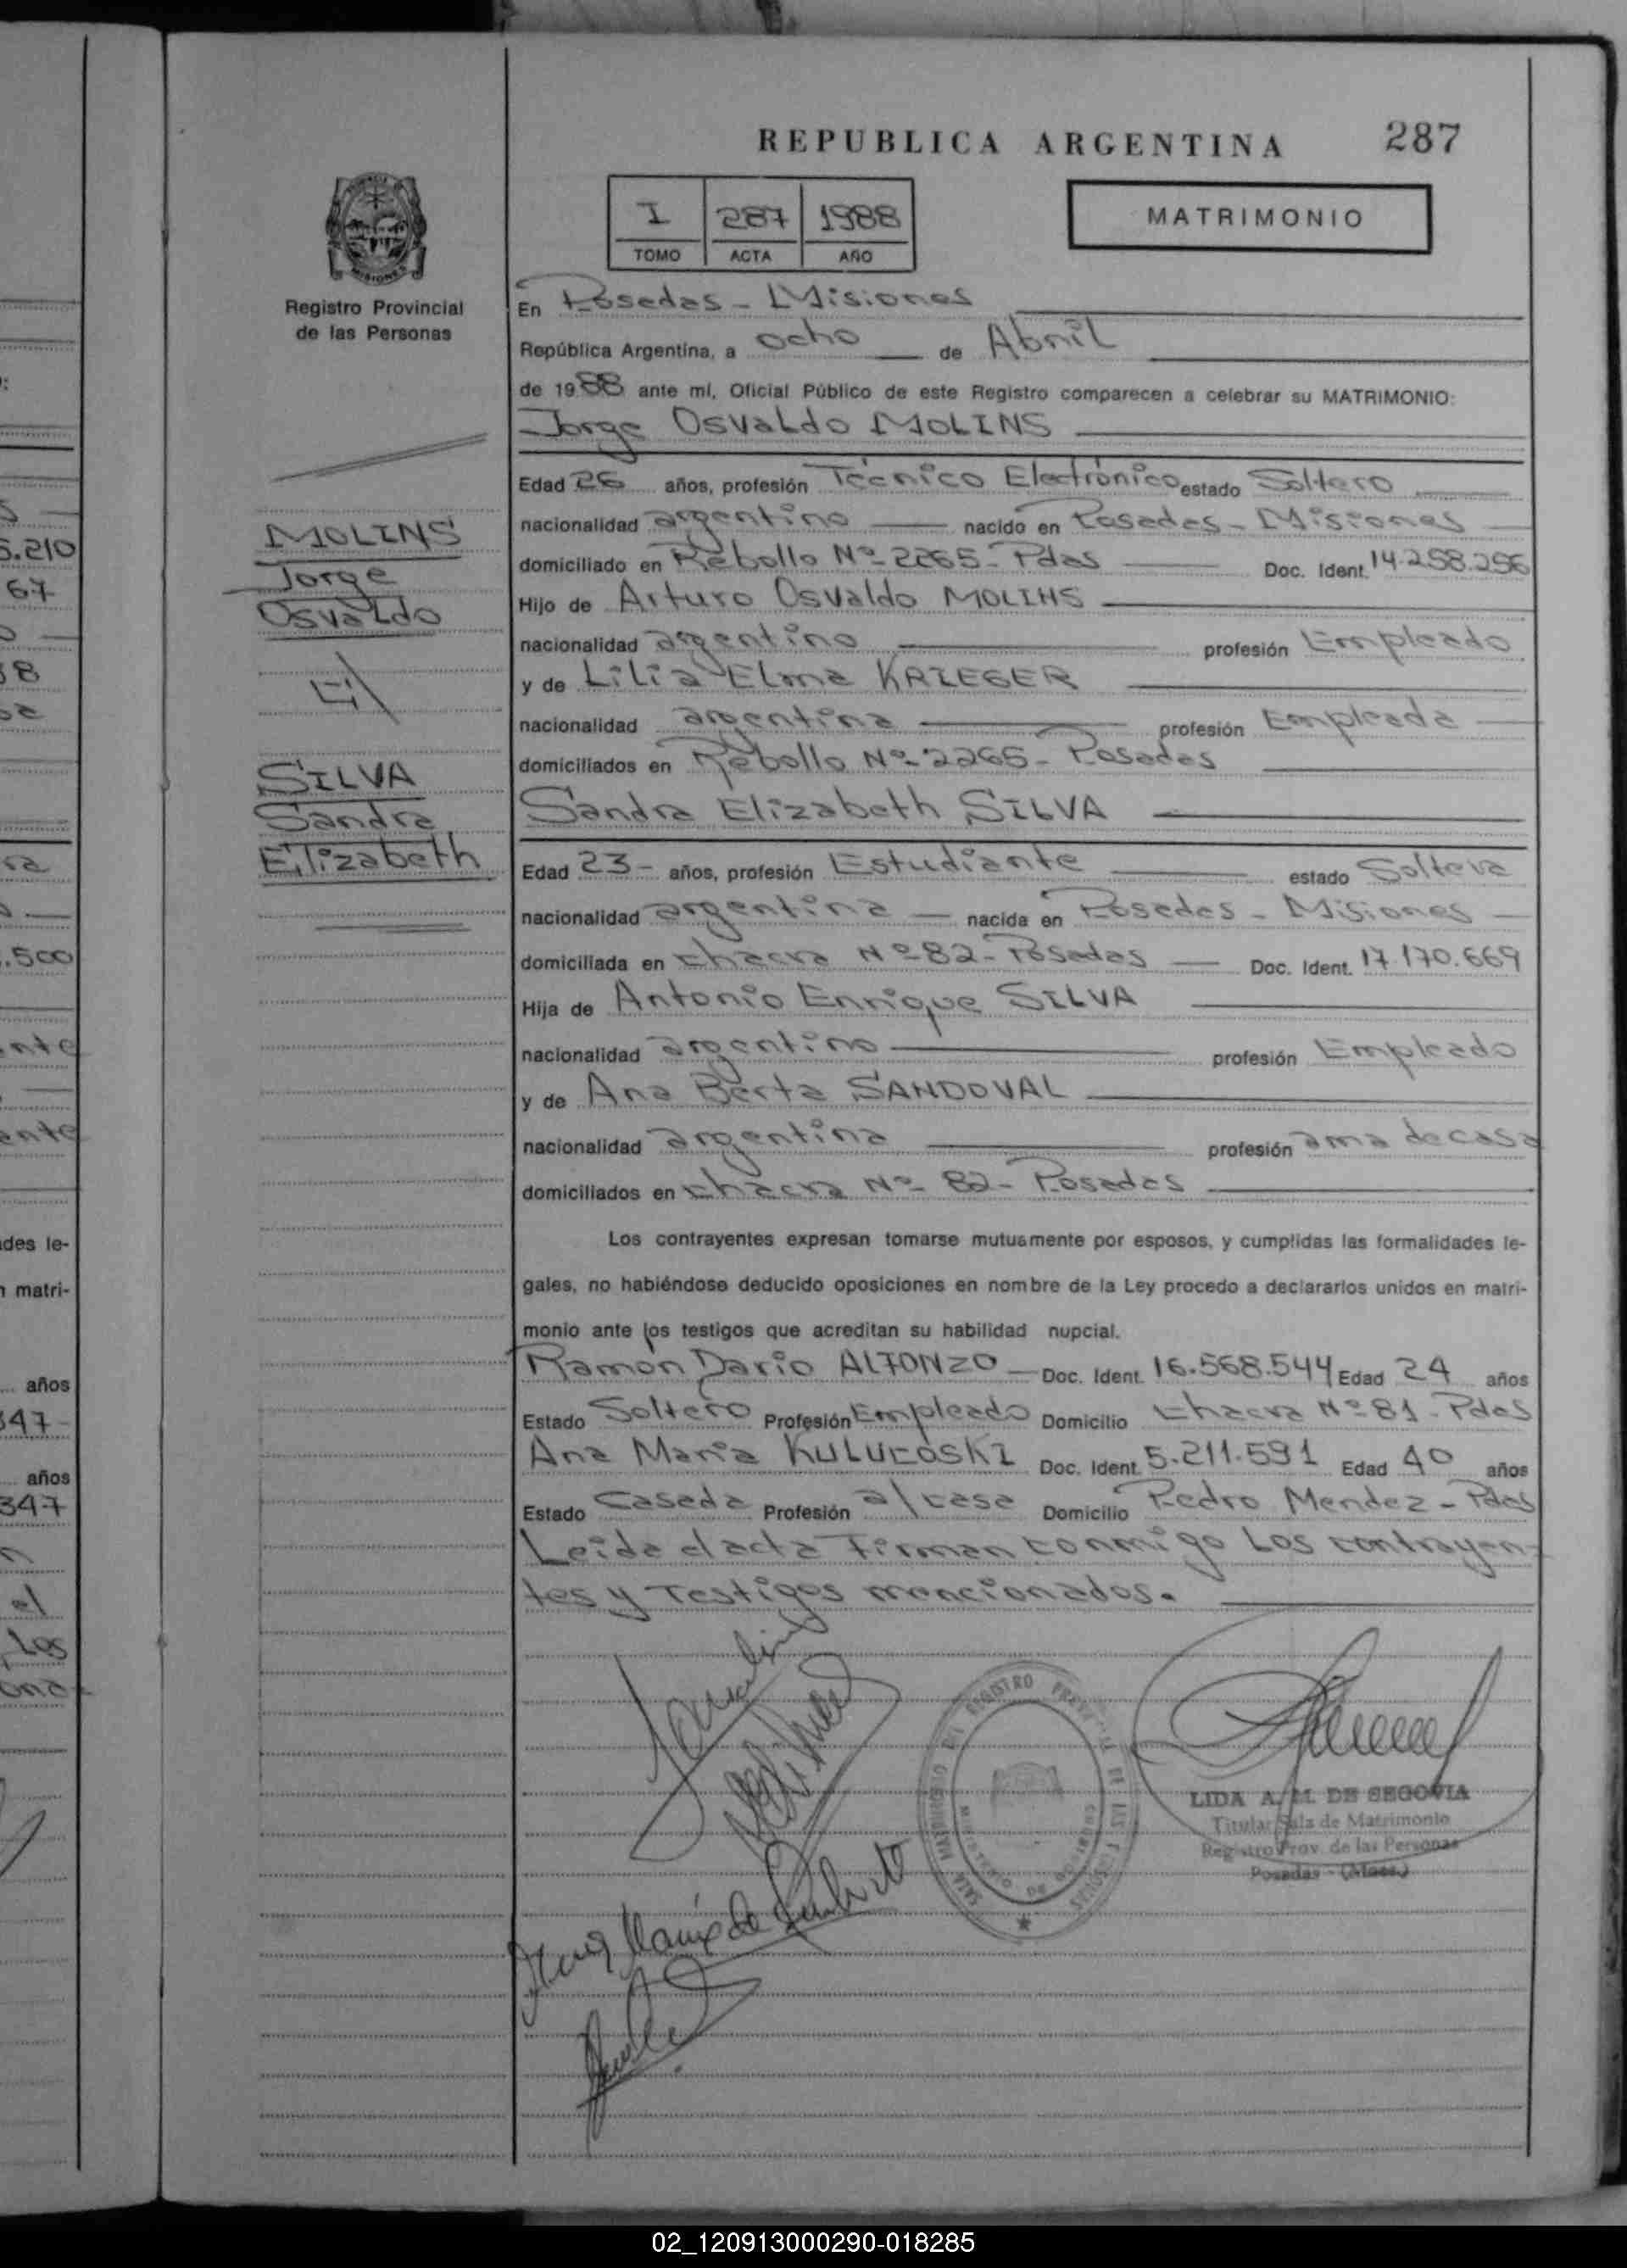 REPUBLICA ARGENTINA 287
I 287 1988
TOMO ACTA AÑO
MATRIMONIO
MISIONES
Registro Provincial
de las Personas
En Posadas - Misiones
República Argentina, a ocho de Abril
de 1988 ante mí, Oficial Público de este Registro comparecen a celebrar su MATRIMONIO:
Jorge Osvaldo MOLINS
Edad 26 años, profesión Técnico Electrónico estado Soltero
nacionalidad argentino nacido en Posadas - Misiones
domiciliado en Rebollo Nº 2265 - Pdas Doc. Ident. 14.258.256
Hijo de Arturo Osvaldo MOLINS
nacionalidad argentino profesión Empleado
y de Lilia Elma KRIEGER
nacionalidad argentina profesión Empleada
domiciliados en Rebollo Nº 2265 - Posadas
Sandra Elizabeth SILVA
Edad 23 - años, profesión Estudiante estado Soltera
nacionalidad argentina nacida en Posadas - Misiones
domiciliada en chacra Nº 82 - Posadas Doc. Ident. 17.170.669
Hija de Antonio Enrique SILVA
nacionalidad argentino profesión Empleado
y de Ana Berta SANDOVAL
nacionalidad argentina profesión ama de casa
domiciliados en chacra Nº 82 - Posadas
Los contrayentes expresan tomarse mutuamente por esposos, y cumplidas las formalidades le-
gales, no habiéndose deducido oposiciones en nombre de la Ley procedo a declararlos unidos en matri-
monio ante los testigos que acreditan su habilidad nupcial.
Ramon Dario ALFONZO Doc. Ident. 16.568.544 Edad 24 años
Estado Soltero Profesión Empleado Domicilio chacra Nº 81 - Pdas
Ana Maria KULUCOSKI Doc. Ident. 5.211.591 Edad 40 años
Estado Casada Profesión a/casa Domicilio Pedro Mendez - Pdas
Leida el acta Firman conmigo Los contrayen-
tes y Testigos mencionados.
MOLINS
Jorge
Osvaldo
c/
SILVA
Sandra
Elizabeth
LIDA A. M. DE SEGOVIA
Titular Sala de Matrimonio
Registro Prov. de las Personas
Posadas - (Mnes.)
5.210
67
.500
des le-
matri-
años
347
años
347
el
Los
02_120913000290-018285